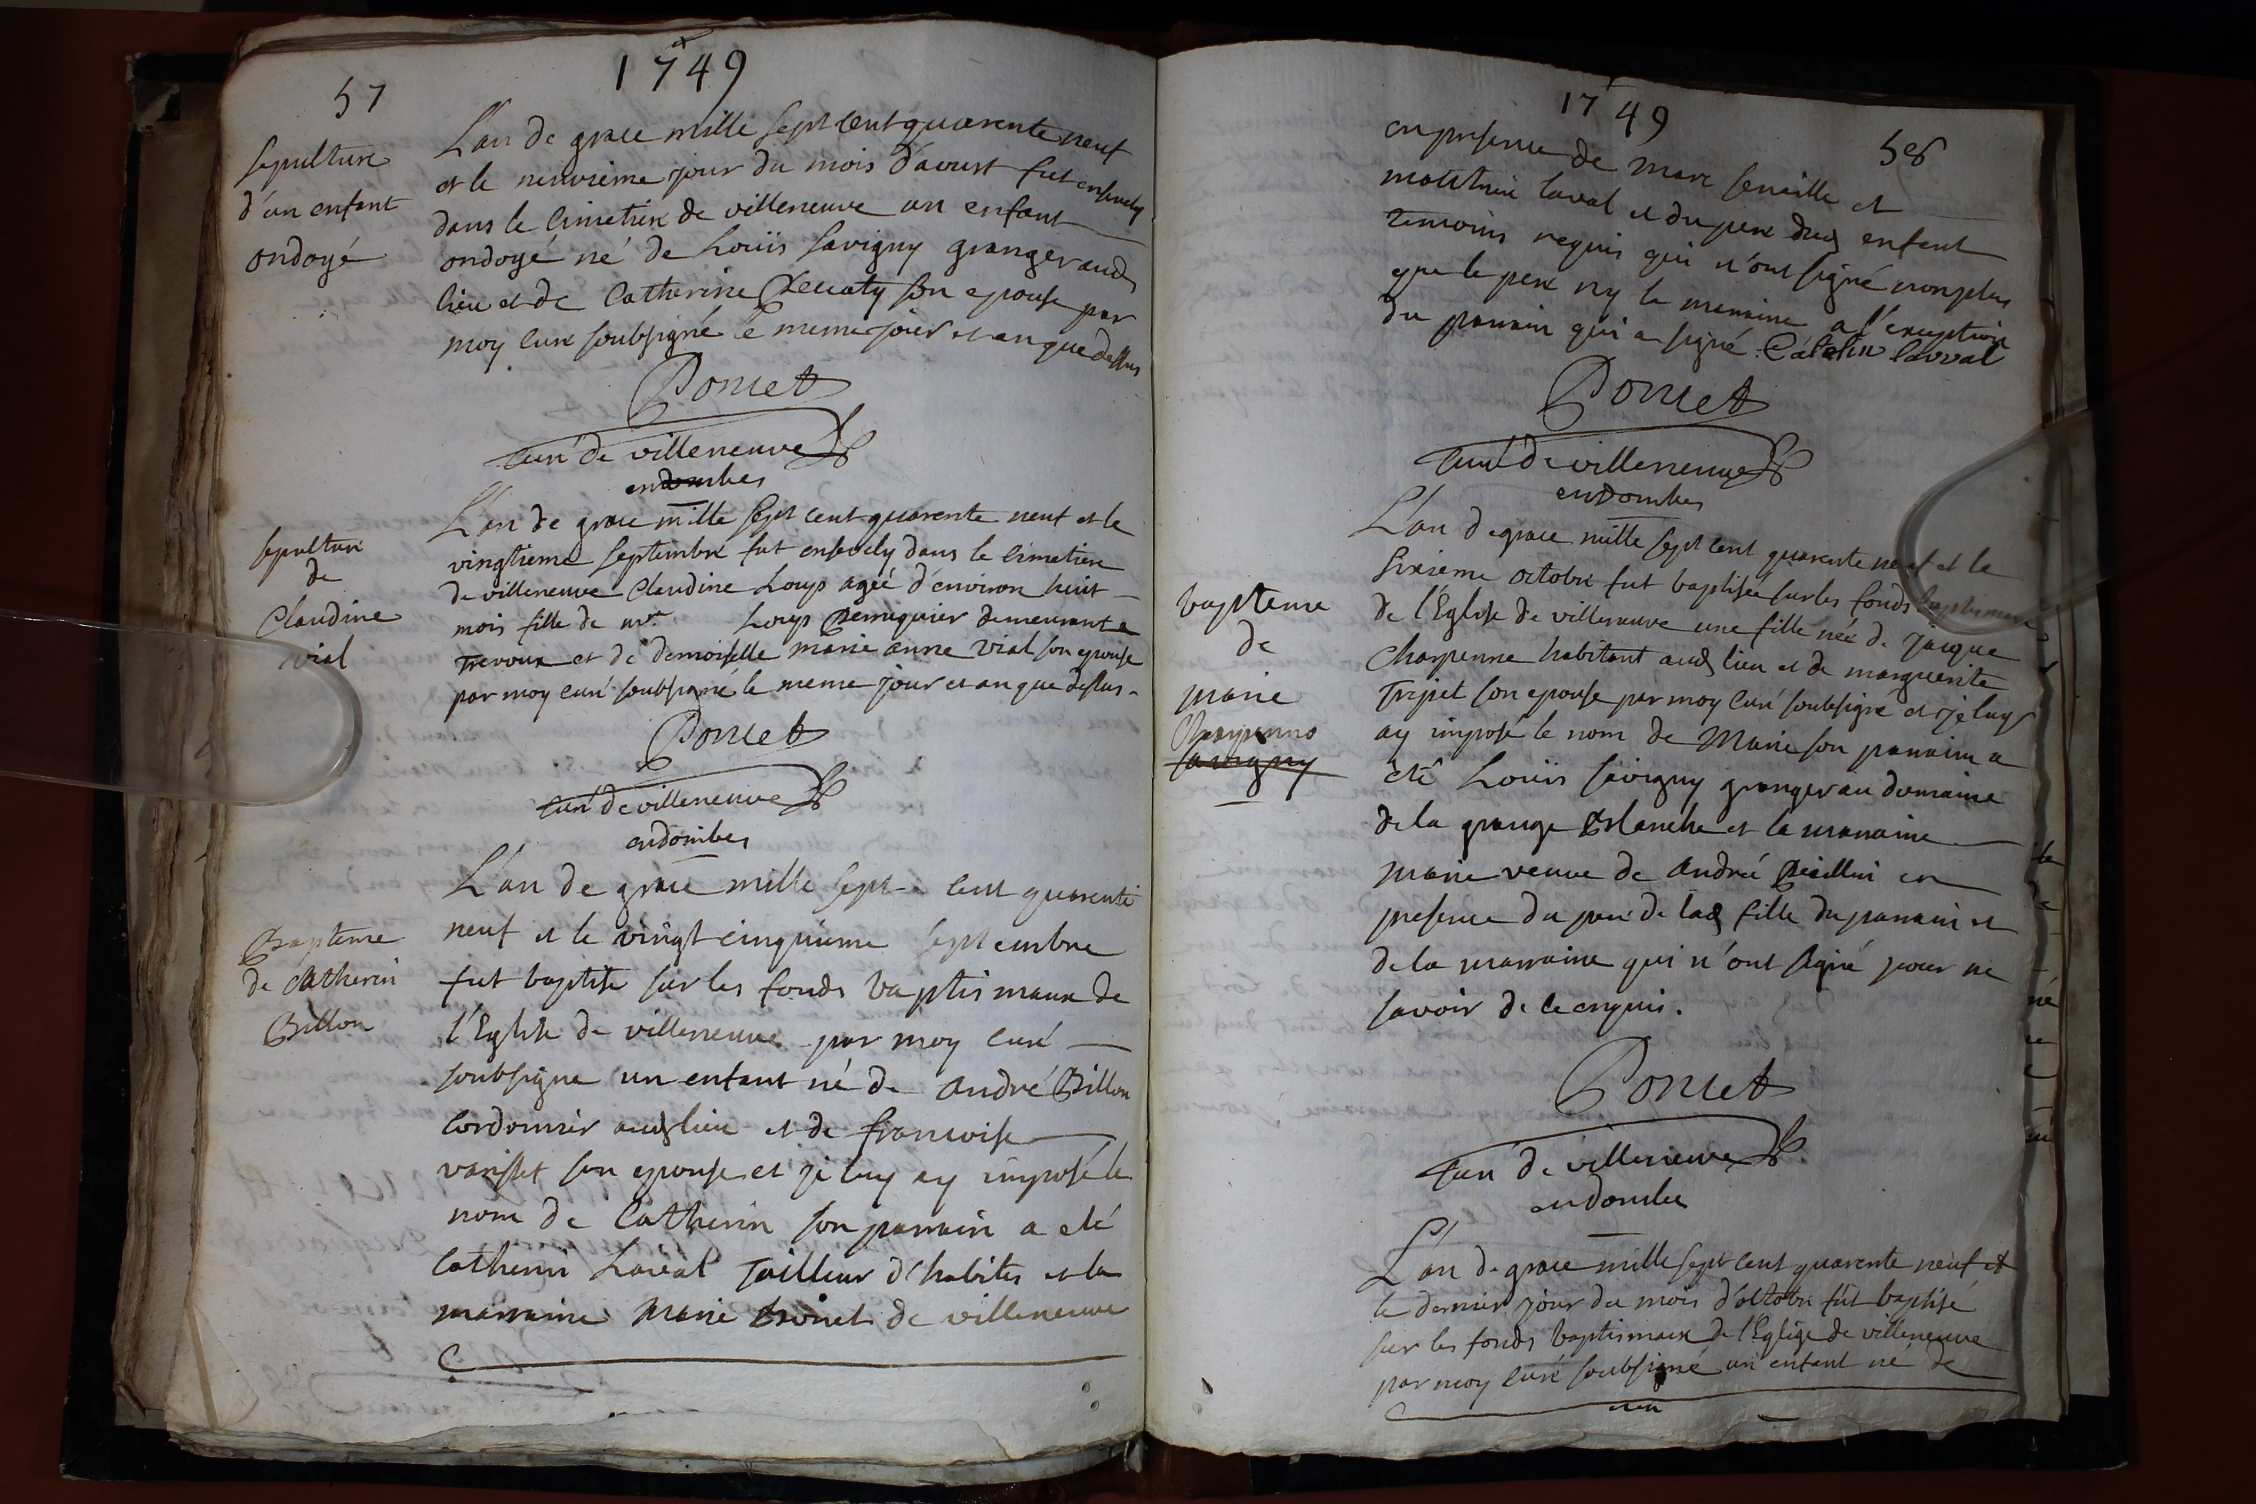 1749
57
Sepulture
d'un enfant
ondoyé
L'an de grace mille sept cent quarente neuf
et le neuvieme jour du mois d'aoust fut ensevely
dans le cimetiere de villeneuve un enfant
ondoyé né de Louis Savigny granger aud
lieu et de Catherine son epouse par
moy curé soubsigné le meme jour et an que dessus
Poncet
curé de villeneuve
en dombes
Sepulture
de
Claudine
vial
L'an de grace mille sept cent quarente neuf et le
vingtieme septembre fut ensevely dans le cimetiere
de villeneuve Claudine Loup agée d'environ huit
mois fille de mr Loup perruquier demeurant a
Trevoux et de demoiselle marie anne vial son epouse
par moy curé soubsigné le meme jour et an que dessus
Poncet
curé de villeneuve
en dombes
Bapteme
de Catherin
Billon
L'an de grace mille sept cent quarente
neuf et le vingt cinquieme septembre
fut baptise sur les fonds baptismaux de
l'Eglise de villeneuve par moy curé
soubsigne un enfant né de andré Billon
cordonnier aud lieu et de francoise
varisset son epouse et je luy ay imposé le
nom de Catherin son parrain a eté
Catherin Laval Tailleur d'habits et la
marraine Marie de villeneuve
1749
58
en presence de Marc et
laval et du pere dud enfant
temoins requis qui n'ont signé non plus
que le pere ny la marraine a l'exception
du parrain qui a signé Catelin lavval
Poncet
curé de villeneuve
en dombes
bapteme
de
marie
Charpenne
savigny
L'an de grace mille sept cent quarente neuf et le
sixieme octobre fut baptisée sur les fonds baptismaux
de l'Eglise de villeneuve une fille née de jacque
Charpenne habitant aud lieu et de marguerite
Tripet son epouse par moy curé soubsigné et je luy
ay imposé le nom de Marie son parrain a
eté Louis Savigny granger au domaine
de la grange Blanche et la marraine
marie veuve de andré en
presence du pere de lad fille du parrain et
de la marraine qui n'ont signé pour ne
savoir de ce enquis.
Poncet
curé de villeneuve
en dombes
L'an de grace mille sept cent quarente neuf et
le dernier jour du mois d'octobre fut baptisé
sur les fonds baptismaux de l'Eglise de villeneuve
par moy curé soubsigné un enfant né de